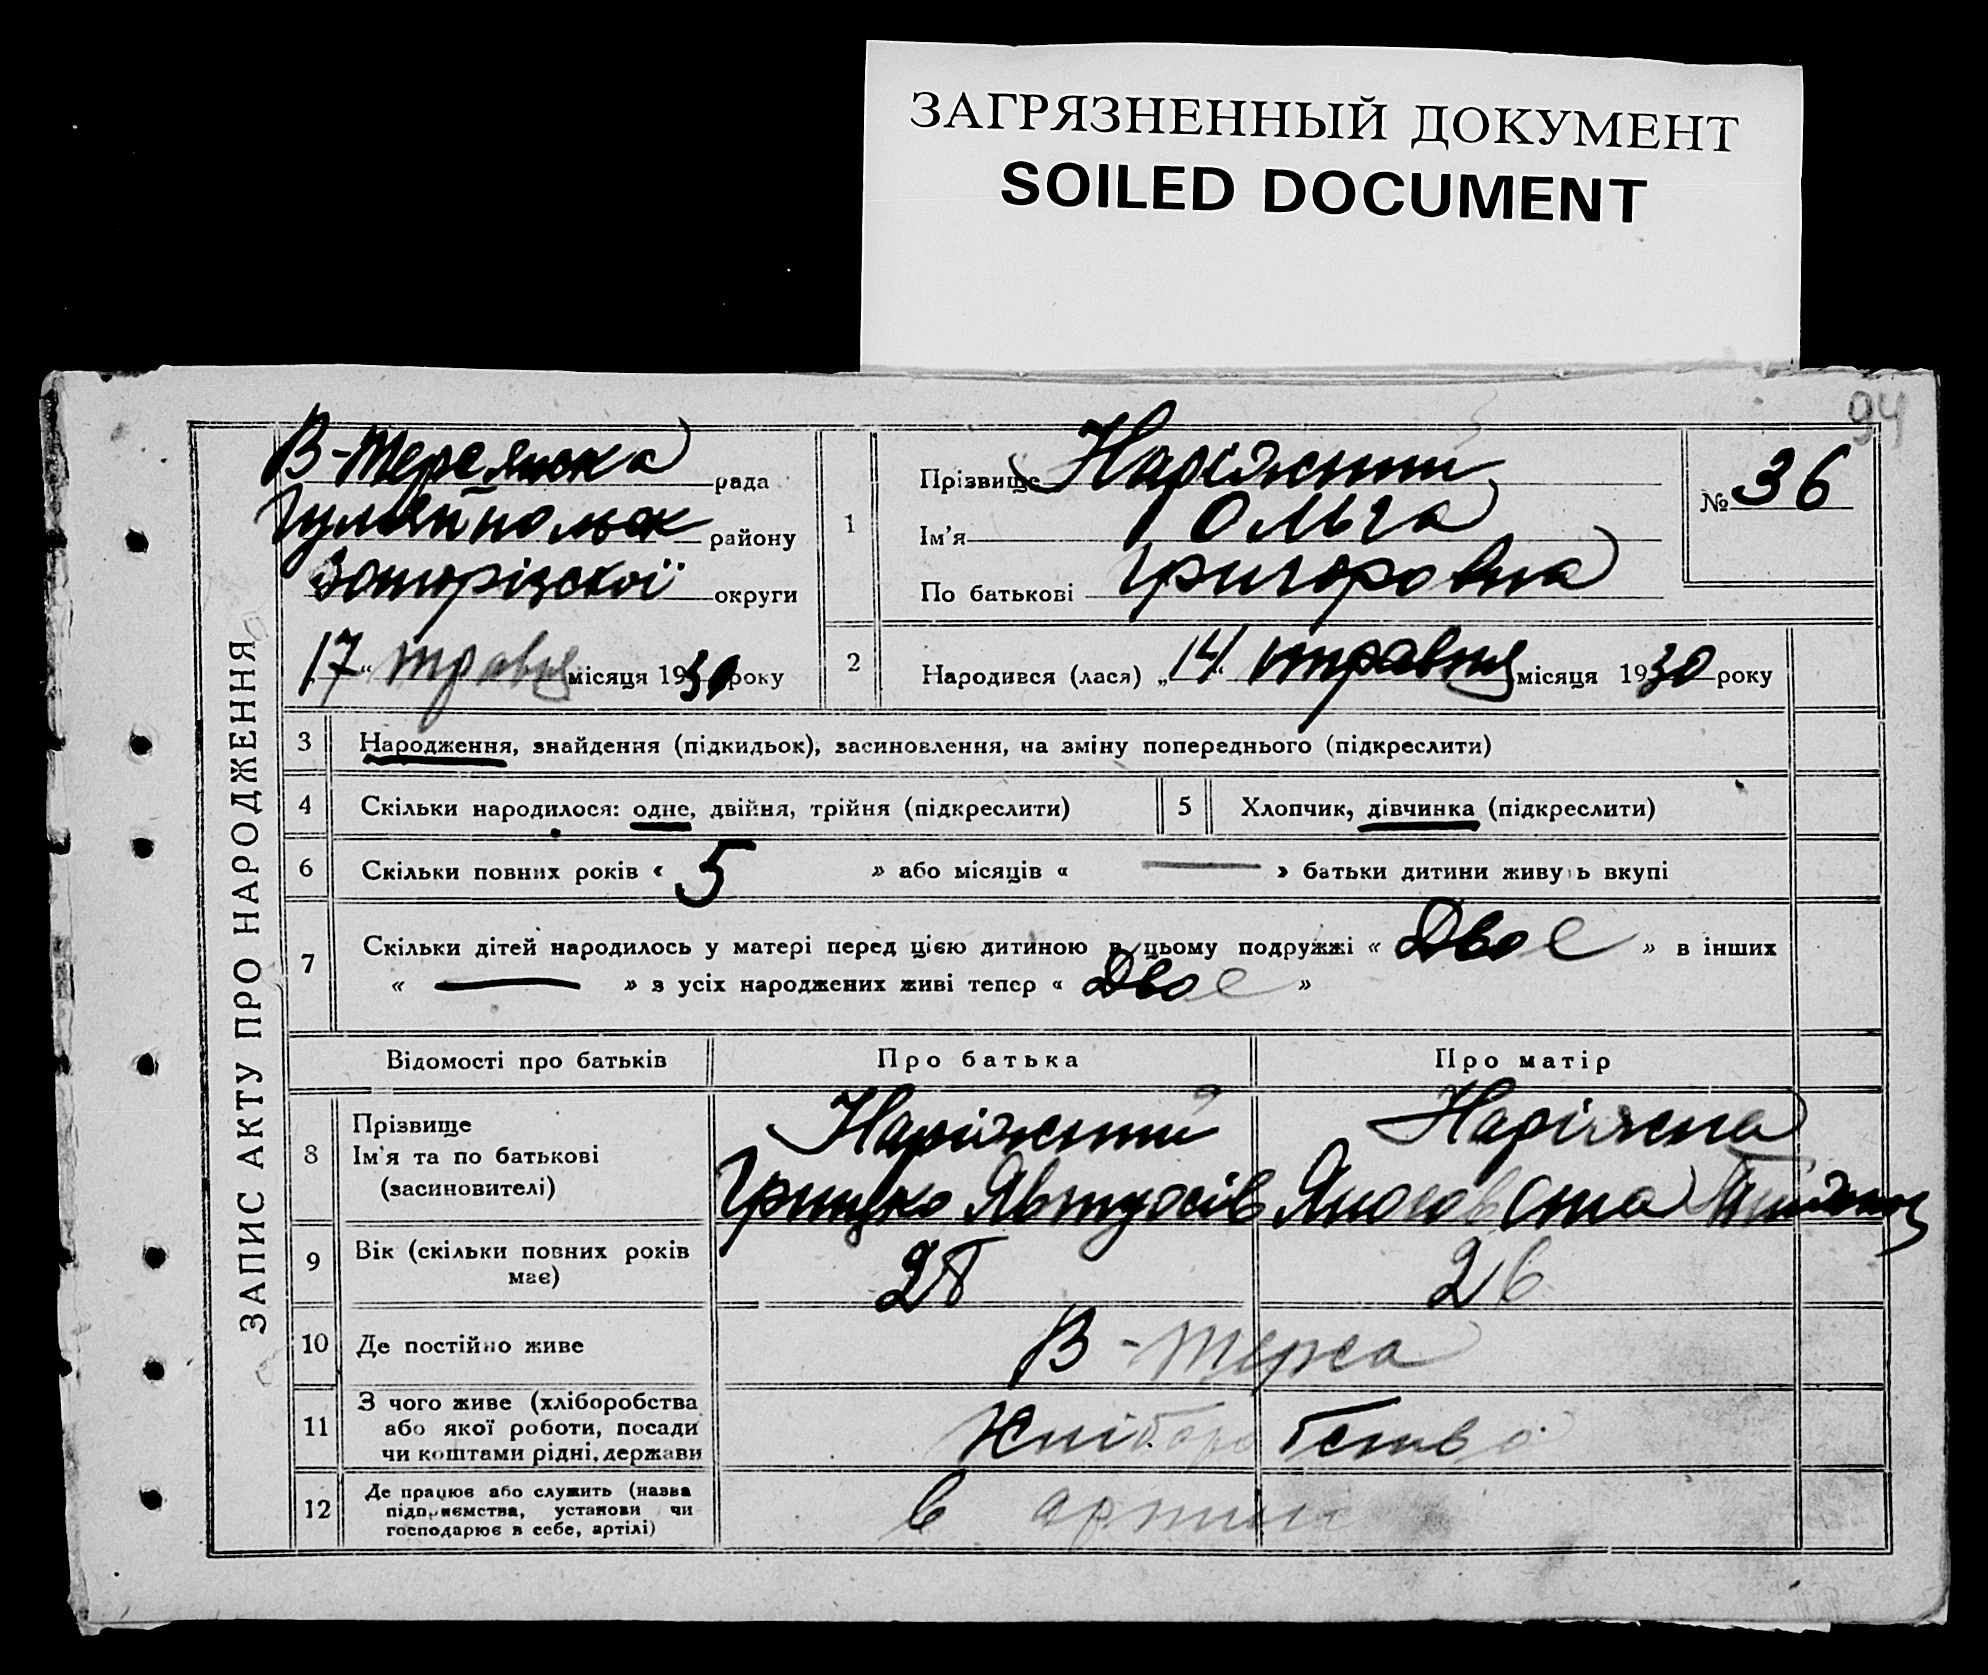 ЗАГРЯЗНЕННЫЙ ДОКУМЕНТ
SOILED DOCUMENT
94
ЗАПИС АКТУ ПРО НАРОДЖЕННЯ
В-Терсянска рада
Гуляйпольск району
Запорізскої округи
17 “ травня місяця 1930 року
1
Прізвище Наріжний
Ім'я Ольга
По батькові Григоровна
№ 36
2
Народився (лася) „ 14 “ травня місяця 1930 року
3 Народження, знайдення (підкидьок), засиновлення, на зміну попереднього (підкреслити)
4 Скільки народилося: одне, двійня, трійня (підкреслити)
5 Хлопчик, дівчинка (підкреслити)
6 Скільки повних років « 5 » або місяців « — » батьки дитини живуть вкупі
7 Скільки дітей народилось у матері перед цією дитиною в цьому подружжі « Двое » в інших
« — » з усіх народжених живі тепер « Двое »
Відомості про батьків Про батька Про матір
8 Прізвище
Ім'я та по батькові
(засиновителі)
Наріжний
Грицко Явтухів
Наріжна
9 Вік (скільки повних років
має)
28 26
10 Де постійно живе В-Терса
11 З чого живе (хліборобства
або якої роботи, посади
чи коштами рідні, держави
Хліборобство
12 Де працює або служить (назва
підприємства, установи чи
господарює в себе, артілі)
в артилі